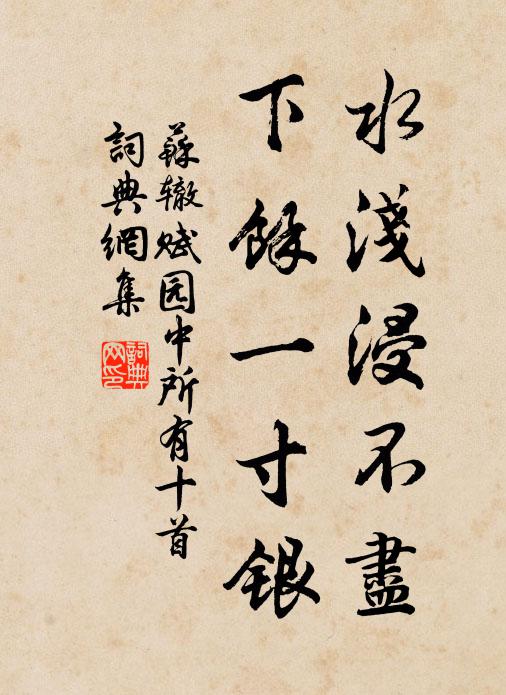 水淺浸不盡
下餘一寸銀
蘇辙赋园中所有十首
詞典網集
詞典網印